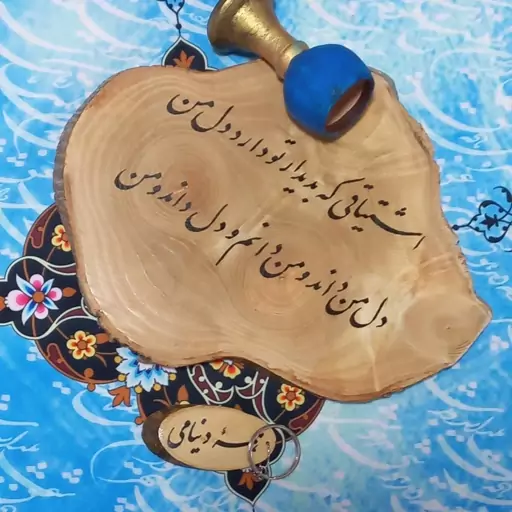 اشتیاقی که بدیدار تو دارد دل من
دل من داند و من دانم و دل داند و من
دنیامی